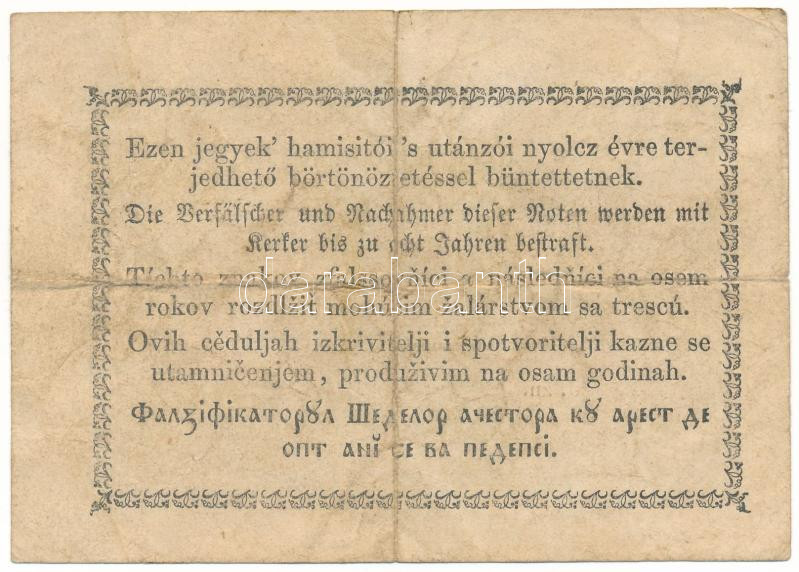 Ezen jegyek' hamisitói 's utánzói nyolcz évre ter-
jedhető börtönöztetéssel büntettetnek.
Die Verfälscher und Nachahmer dieser Noten werden mit
Kerker bis zu acht Jahren bestraft.
Tíchto a následňíci na osem
rokov rozdĺžit žalárstvom sa trescú.
Ovih cĕduljah izkrivitelji i spotvoritelji kazne se
utamničenjem, produživim na osam godinah.
Фалʒіфікаторꙋл Шеделор ачестора кꙋ арест де
опт анĭ се ва педепсі.
darabanth